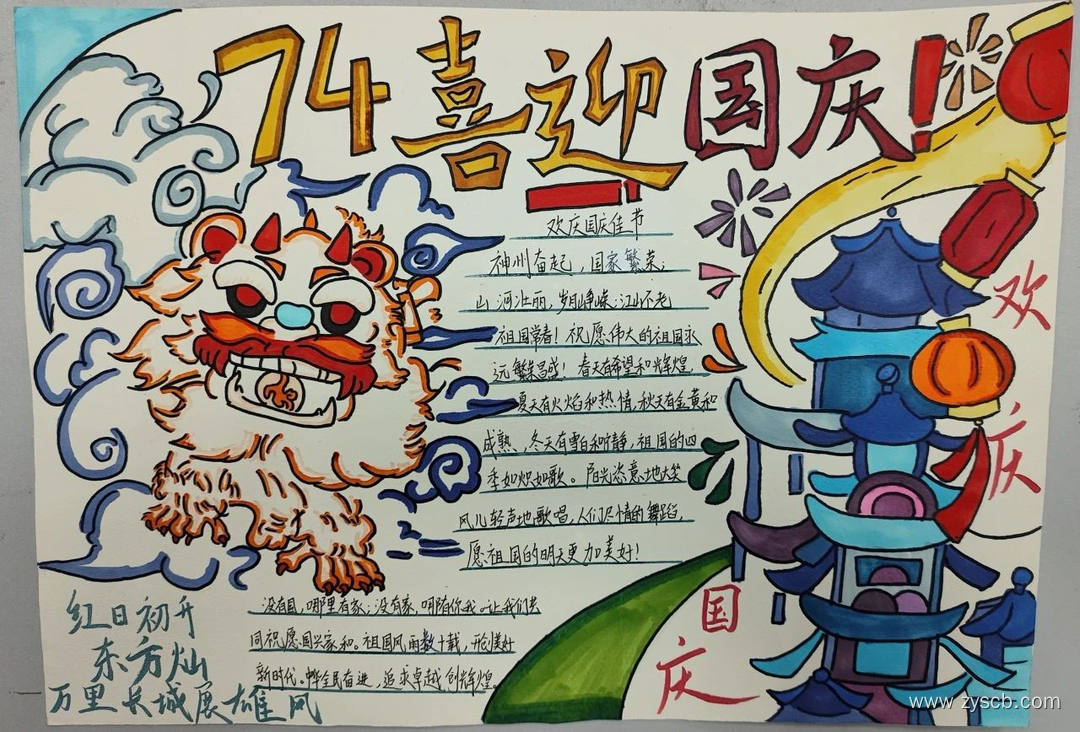 74喜迎国庆!
欢庆国庆佳节
神州奋起，国家繁荣；
山河壮丽，岁月峥嵘；江山不老
祖国常春！祝愿伟大的祖国永
远繁荣昌盛！春天有希望和辉煌
夏天有火焰和热情，秋天有金黄和
成熟，冬天有雪白和宁静，祖国的四
季如炽如歌。阳光恣意地大笑
风儿轻声地歌唱，人们尽情的舞蹈，
愿祖国的明天更加美好！
没有国，哪里有家；没有家，哪有你我。让我们共
同祝愿国兴家和。祖国风雨数十载，
新时代。全民奋进，追求卓越创辉煌。
红日初升
东方灿
万里长城展雄风
欢
庆
国
庆
www.zyscb.com